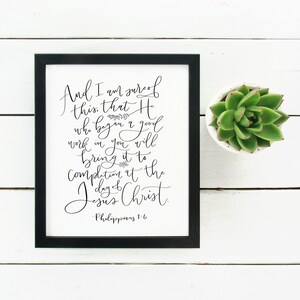 And I am sure of
this, that He
who began a good
work in you will
bring it to
completion at the
day of
Jesus Christ.
Philippians 1:6